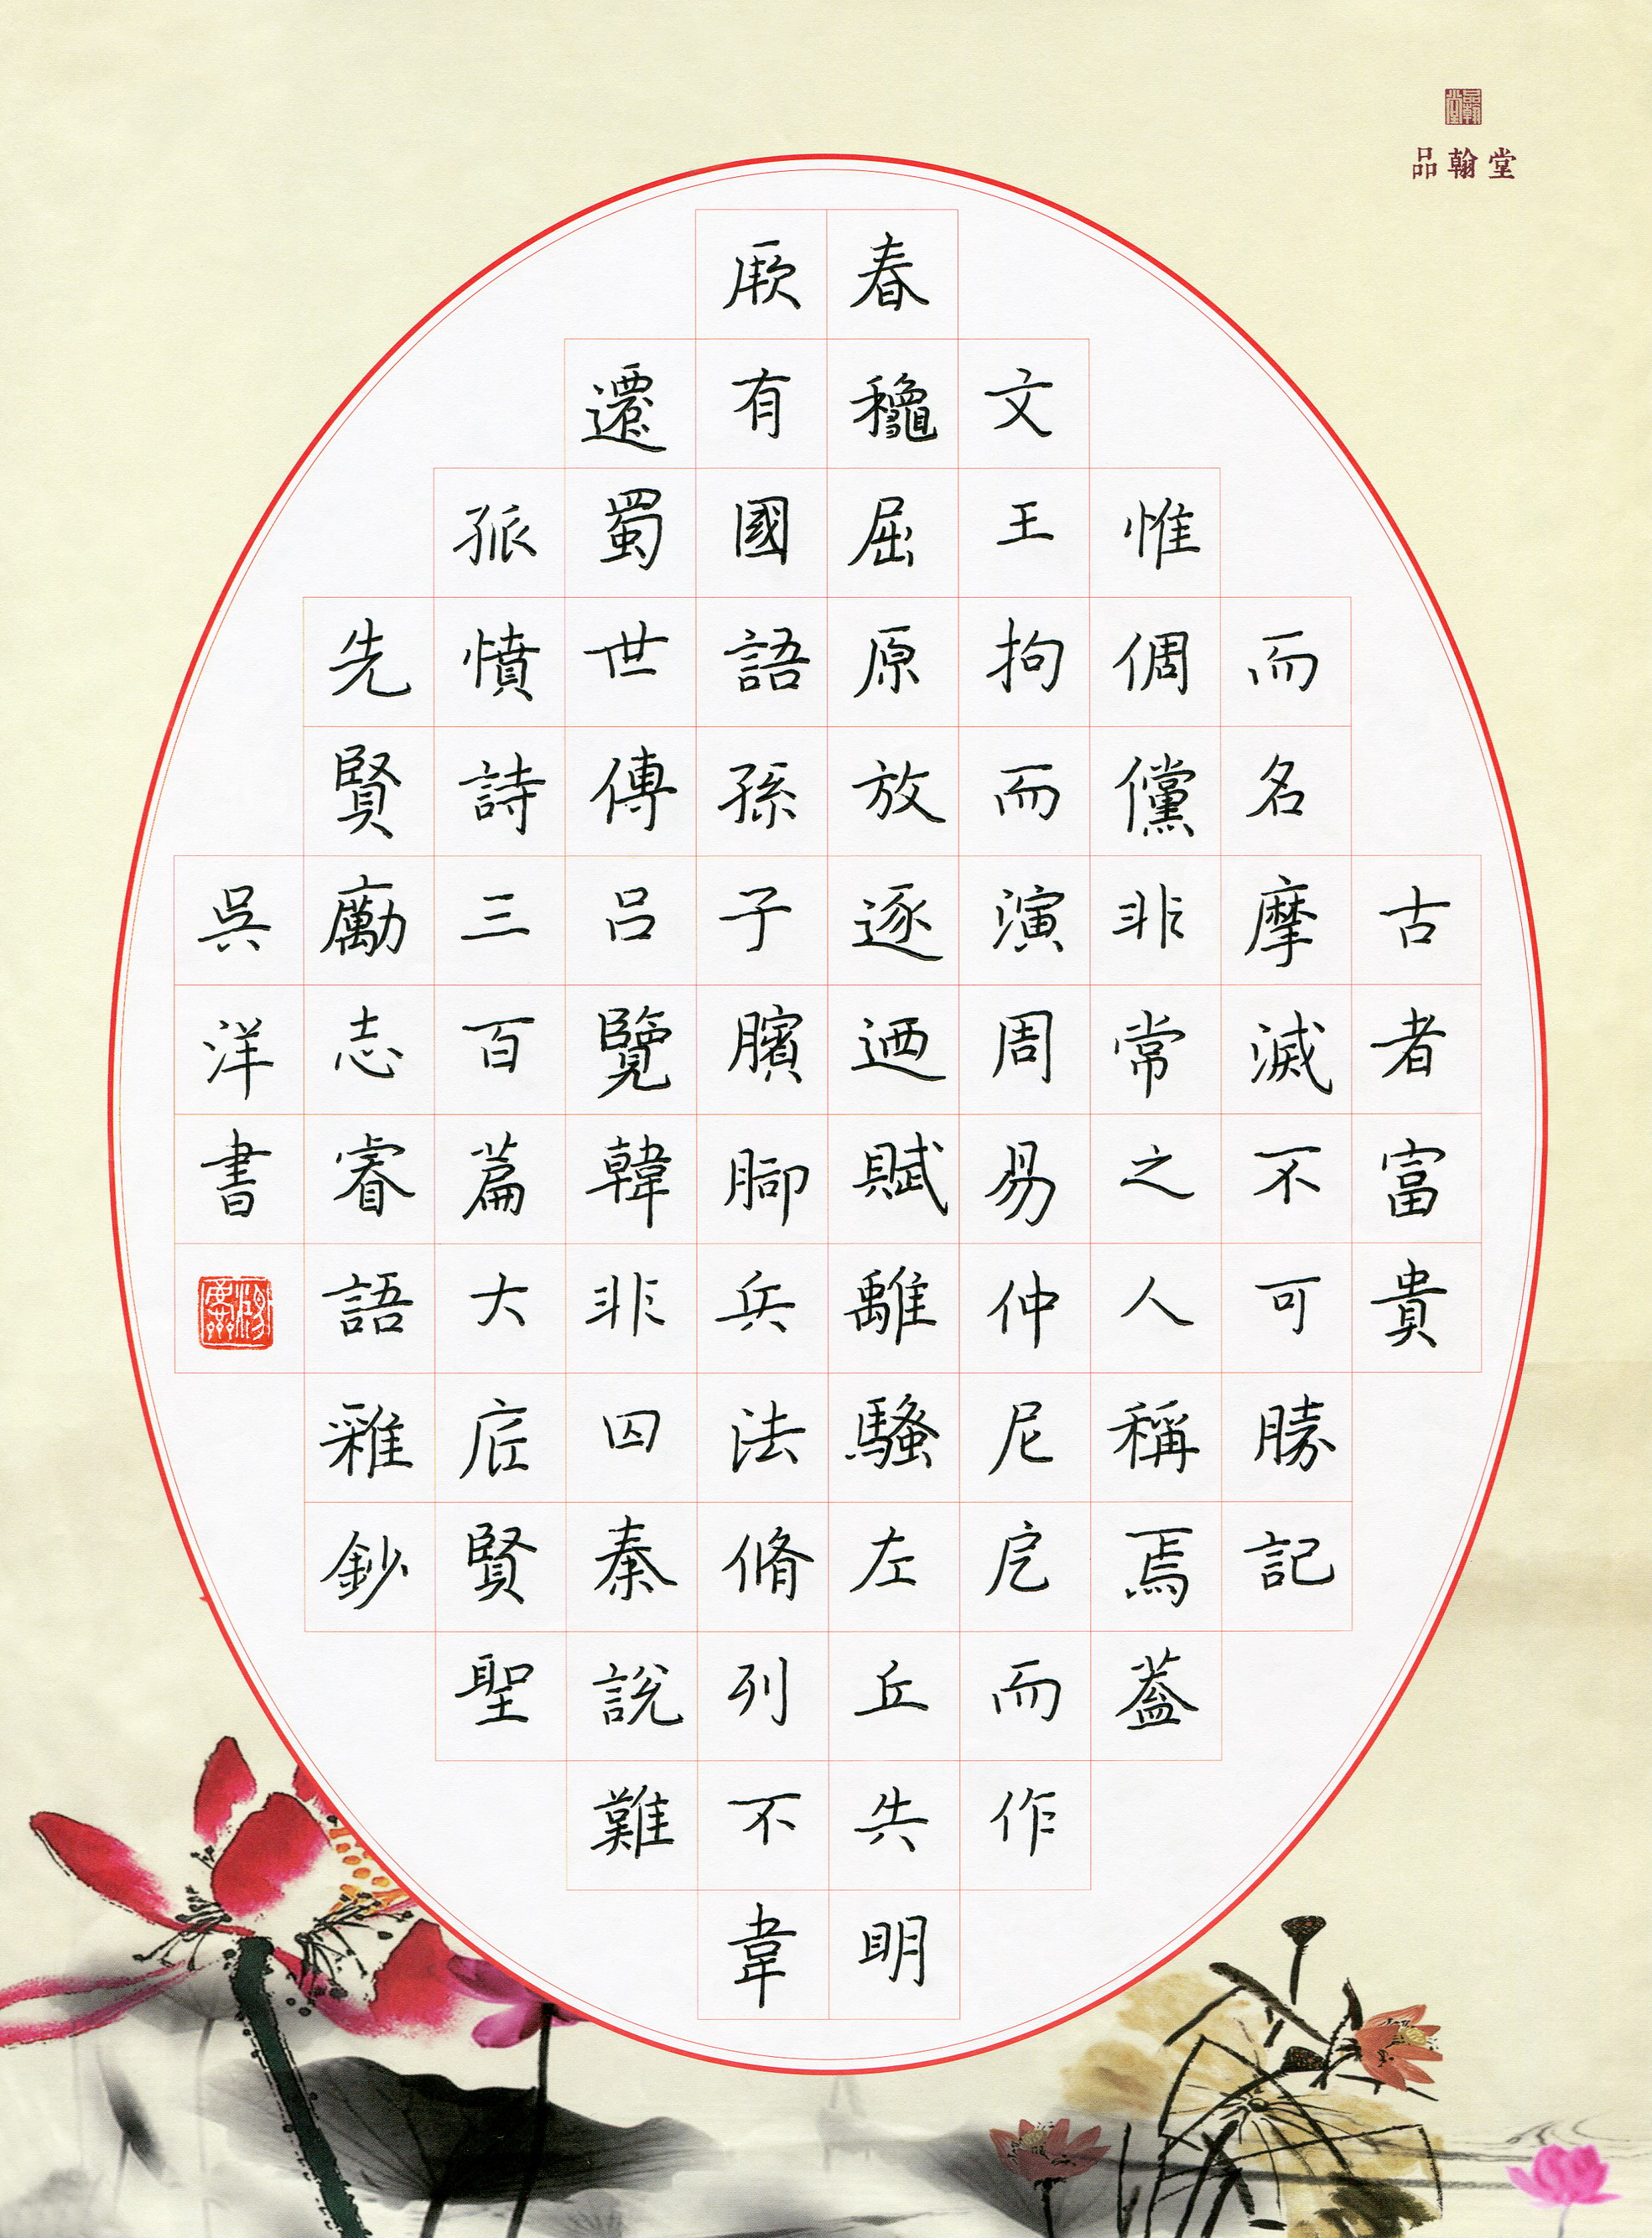 品翰堂
古者富貴
而名摩滅不可勝記
惟倜儻非常之人稱焉蓋
文王拘而演周易仲尼戹而作
春龝屈原放逐迺賦離騷左丘失明
厥有國語孫子臏腳兵法脩列不韋
遷蜀世傳呂覽韓非囚秦說難
孤憤詩三百篇大底賢聖
先賢勵志睿語雜鈔
吳洋書